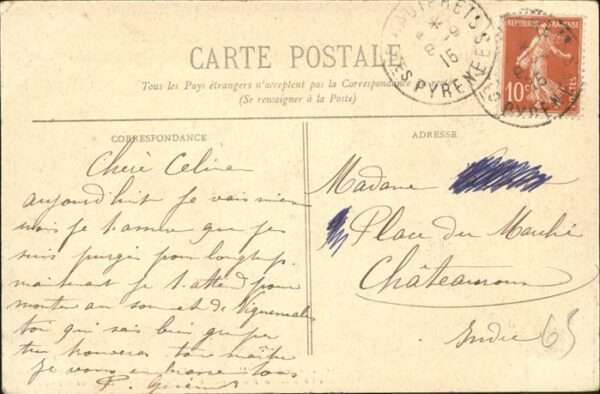 CARTE POSTALE
Tous les Pays étrangers n'acceptent pas la Correspondance
(Se renseigner à la Poste)
CORRESPONDANCE
ADRESSE
Chère Céline
aujourd'huit je vais mieu
mais je t'assure que je
suis purgée pour longtemps.
maintenant je t'attend pour
monter au sommet de Vignemale
toi qui sais bien grimper
tu trouveras ton maître
Je vous embrasse tous
Madame
Place du Marché
Châteauroux
Indre
65
REPUBLIQUE FRANÇAISE
10c
POSTES
CAUTERETS
15
PYRENEES
15
PYREN